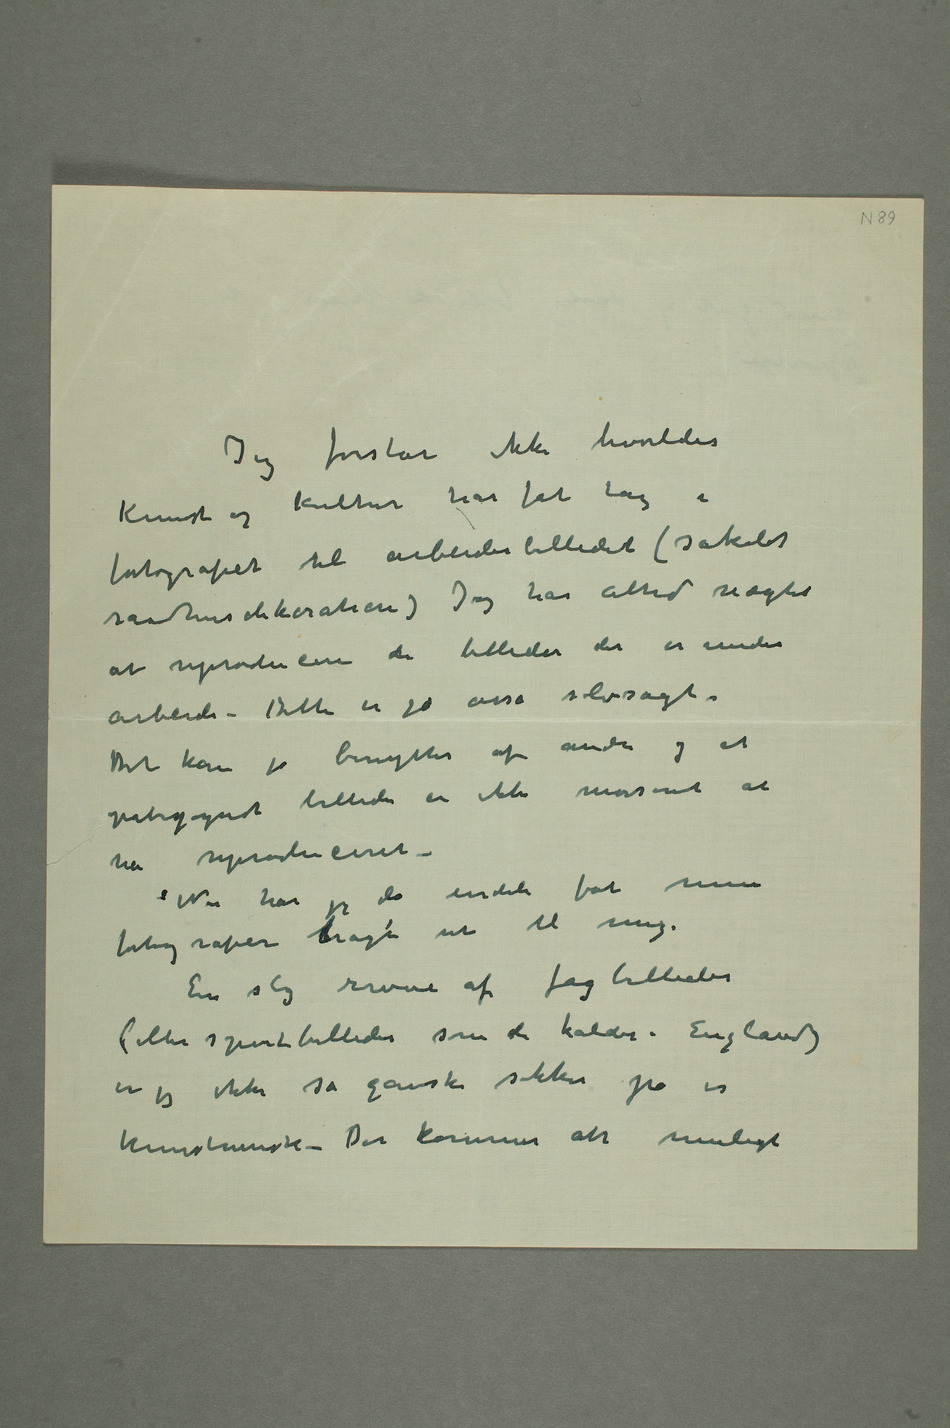 N 89
Jeg forstår ikke hvorledes
Kunst og kultur har fåt tag i
fotografiet til arbeiderbilledet (såkaldt
raadhusdekoration) Jeg har altid nægtet
at reproducere de billeder der er under
arbeide – Dette er jo også selvsagt –
Det kan jo benyttes af andre og et
påbegyndt billede er ikke morsomt at
ha reproduceret –
Nu har jeg da endeli fåt mine
fotografier bragt ut til mig.
En slig revue af fagbilleder
(eller sportsbilleder som de kaldes i England)
er jeg ikke så ganske sikker på er
kunstnerisk – Der kommer alt muligt